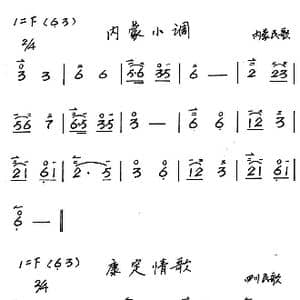 1=F (6̣3) 内蒙小调 内蒙民歌
2/4
3 3 | 6 6 | 5·6 35 | 6 — | 2 23 |
56 7 | 6·5 35 | 3 — | 6 6 | 12 3 |
21 61 | 2 · 5 | 3 6 | 12 3 | 21 61 |
6 — ‖
1=F (6̣3) 康定情歌 四川民歌
2/4